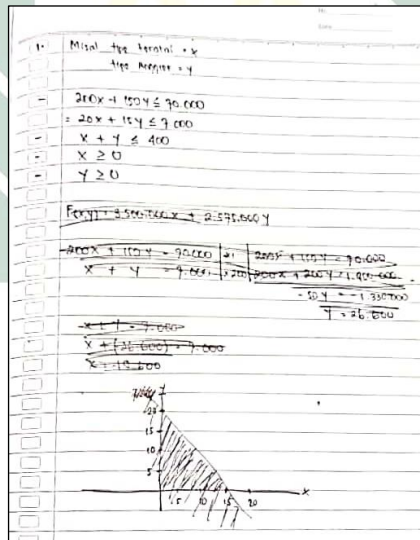 No:
Date:
1. Misal tipe teratai = x
tipe = y
- 200x + 150y ≤ 70.000
= 20x + 15y ≤ 7.000
- x + y ≤ 400
- x ≥ 0
- y ≥ 0
F(x,y) = 3.500.000x + 2.575.000y
200x + 150y = 70.000 | x1 | 200x + 150y = 70.000
x + y = 7.000 | x200 | 200x + 200y = 1.400.000 -
-50y = -1.330.000
y = 26.600
x + y = 7.000
x + (26.600) = 7.000
x = 19.600
y
20
15
10
5
5 10 15 20 x